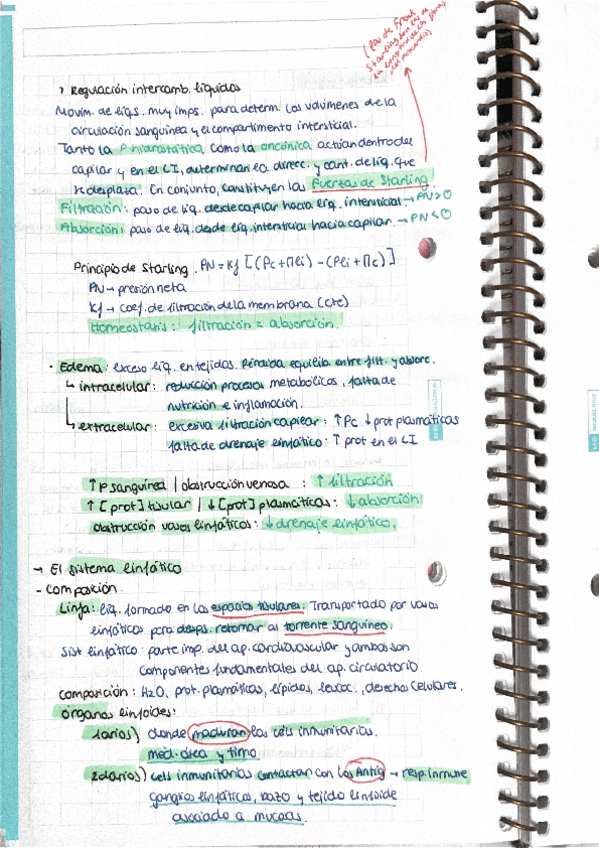 (Ley de Frank
Starling
› Regulación intercamb. líquidos
Movim. de líqs. muy imps. para determ. los volúmenes de la
circulación sanguínea y el compartimento intersticial.
Tanto la P hidrostática como la oncónica actúan dentro del
capilar y en el LI, determinan la direcc. y cant. de líq. que
se desplaza. En conjunto, constituyen las Fuerzas de Starling.
Filtración: paso de líq. desde capilar hacia líq. intersticial → PN>0
Absorción: paso de líq. desde líq. intersticial hacia capilar. → PN<0
Principio de Starling. PN = Kf [(Pc+πli) − (Pli+πc)]
PN → presión neta
Kf → coef. de filtración de la membrana (cte)
Homeostasis: filtración = absorción.
· Edema: exceso líq. en tejidos. Pérdida equilib. entre filt. y absorc.
↳ intracelular: reducción procesos metabólicos, falta de
nutrición e inflamación.
↳ extracelular: excesiva filtración capilar: ↑Pc ↓prot plasmáticas
falta de drenaje linfático: ↑ prot en el LI
↑P sanguínea / obstrucción venosa : ↑ filtración
↑[prot] tisular / ↓[prot] plasmáticas: ↓ absorción
obstrucción vasos linfáticos: ↓ drenaje linfático.
→ El sistema linfático
- Composición.
Linfa: líq. formado en los espacios tisulares. Transportado por vasos
linfáticos para desps. retornar al torrente sanguíneo.
Sist linfático: parte imp. del ap. cardiovascular y ambos son
componentes fundamentales del ap. circulatorio.
Composición: H2O, prot. plasmáticas, lípidos, leucoc., desechos celulares.
órganos linfoides:
1arios) donde maduran las céls inmunitarias.
méd. ósea y timo
2darios) céls inmunitarias contactan con los Antíg → resp. inmune
ganglios linfáticos, bazo y tejido linfoide
asociado a mucosas.